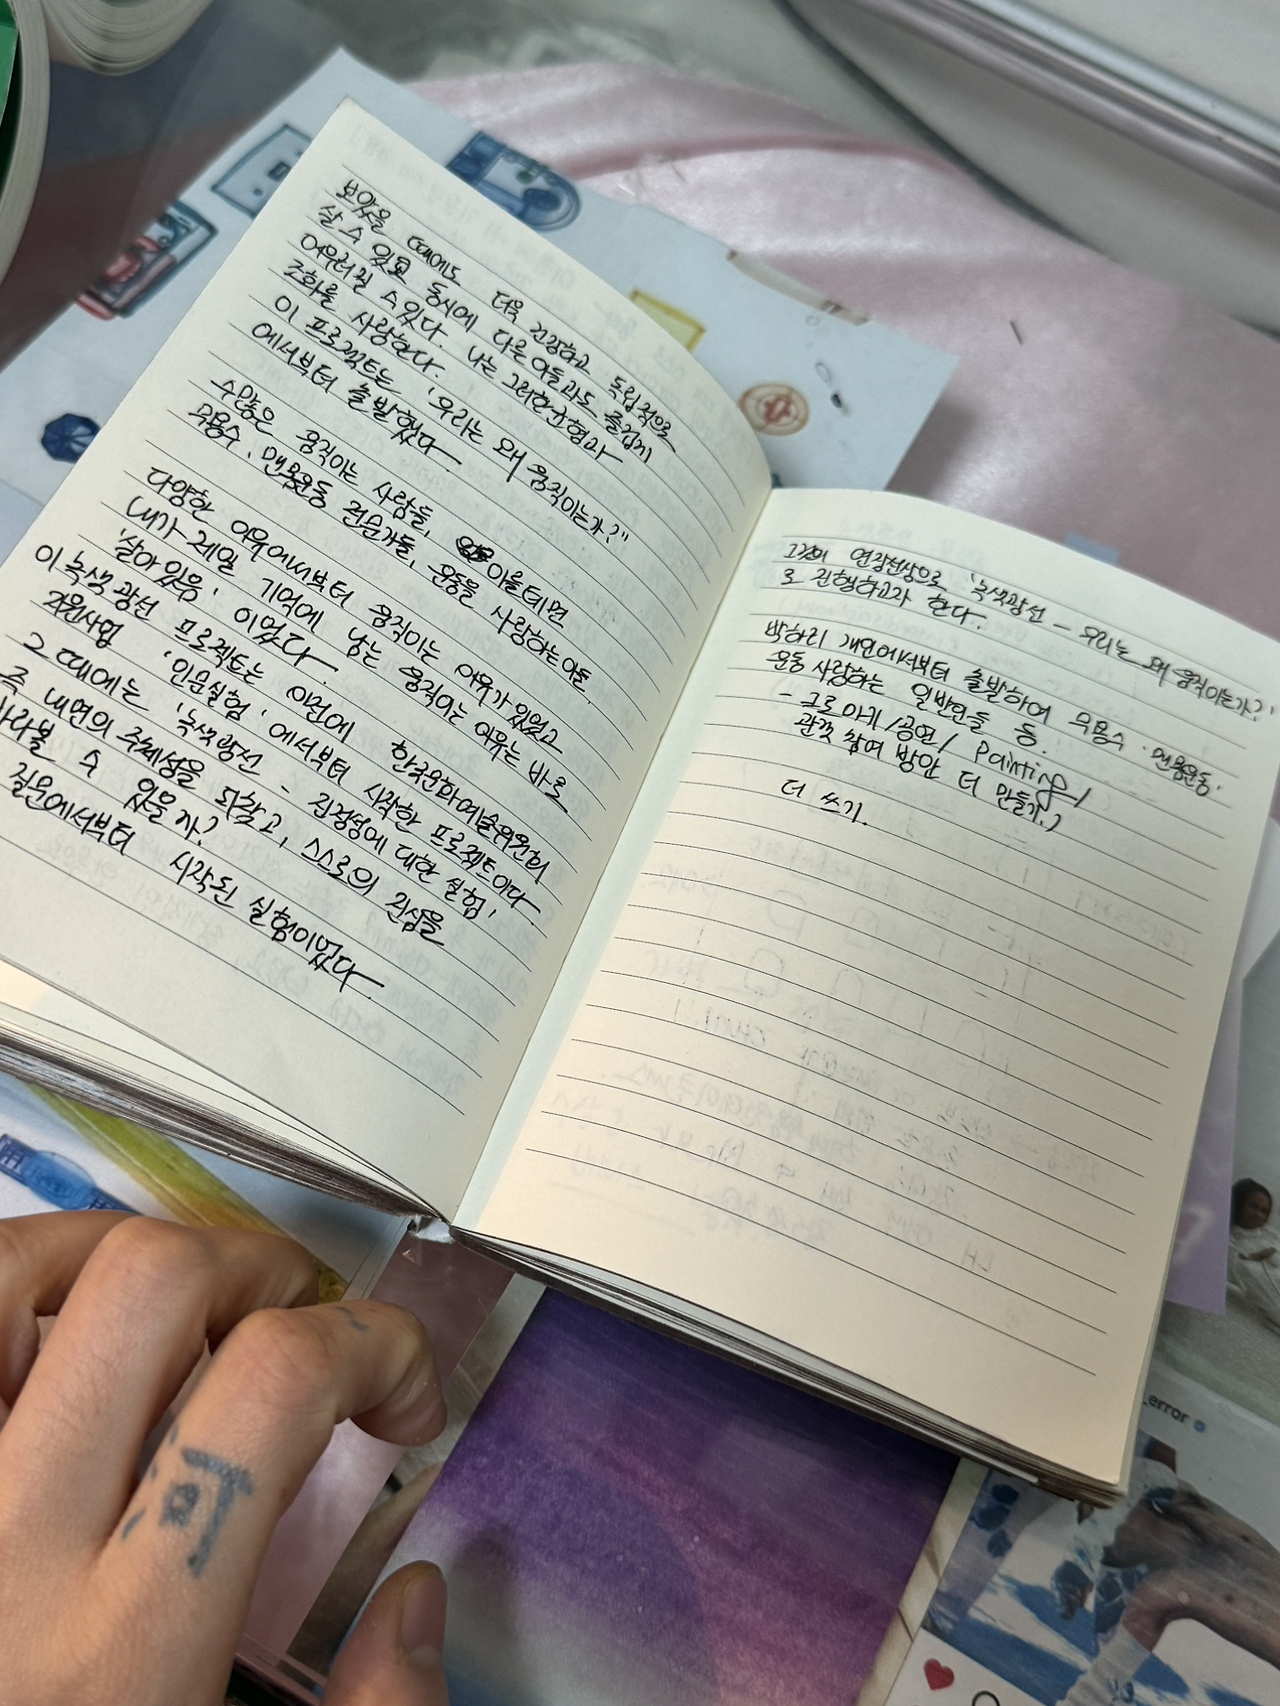 보았을 때에도 더욱 건강하고 독립적으로
살 수 있고 동시에 다른 이들과도 즐겁게
어우러질 수 있다. 나는 그러한 균형과
조화를 사랑한다.
이 프로젝트는 '우리는 왜 움직이는가?'
에서부터 출발했다.
수많은 움직이는 사람들, 이를테면
무용수, 맨몸운동 전문가들, 운동을 사랑하는 이들.
다양한 이유에서부터 움직이는 이유가 있었고
(내가 제일 기억에 남는 움직이는 이유는 바로
'살아있음' 이었다.
이 녹색광선 프로젝트는 이전에 한국문화예술위원회
지원사업 '인문실험'에서부터 시작한 프로젝트이다.
그 때에는 '녹색광선 - 진정성에 대한 실험,
즉 내면의 주체성을 되찾고, 스스로의 진심을
바라볼 수 있을까?
질문에서부터 시작된 실험이었다.
그것의 연장선상으로 '녹색광선 - 우리는 왜 움직이는가?'
로 진행하고자 한다.
박하리 개인에서부터 출발하여 무용수 · 맨몸운동 ·
운동 사랑하는 일반인들 등.
- 크로마키 / 공연 / Painting /
관객 참여 방안 더 만들기.)
더 쓰기.
error